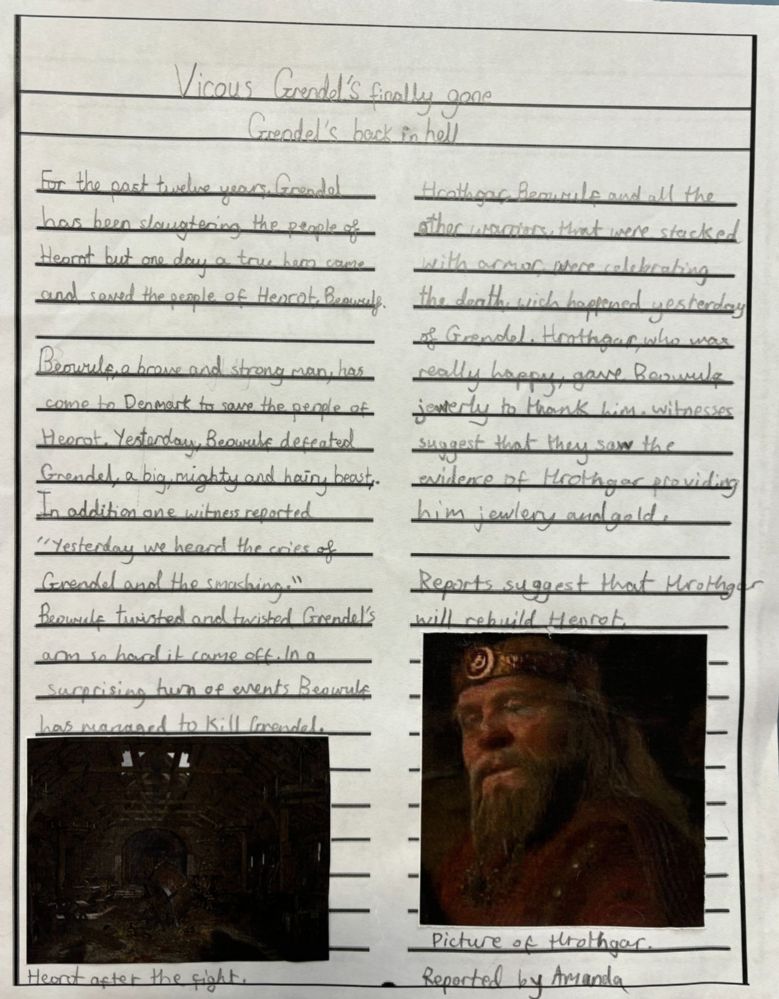 Vicous Grendel's finally gone
Grendel's back in hell
For the past twelve years, Grendel
has been slaugtering the people of
Heorot but one day a true hero came
and saved the people of Heorot, Beowulf.
Beowulf, a brave and strong man, has
come to Denmark to save the people of
Heorot. Yesterday, Beowulf defeated
Grendel, a big, mighty and hairy beast.
In addition one witness reported
"Yesterday we heard the cries of
Grendel and the smashing."
Beowulf twisted and twisted Grendel's
arm so hard it came off. In a
surprising turn of events Beowulf
has managed to kill Grendel.
Heorot after the fight.
Hrothgar, Beowulf and all the
other warriors, that were stacked
with armor, were celebrating
the death, wich happened yesterday
of Grendel. Hrothgar, who was
really happy, gave Beowulf
jewerly to thank him. witnesses
suggest that they saw the
evidence of Hrothgar providing
him jewlery and gold.
Reports suggest that Hrothgar
will rebuild Heorot.
Picture of Hrothgar.
Reported by Amanda